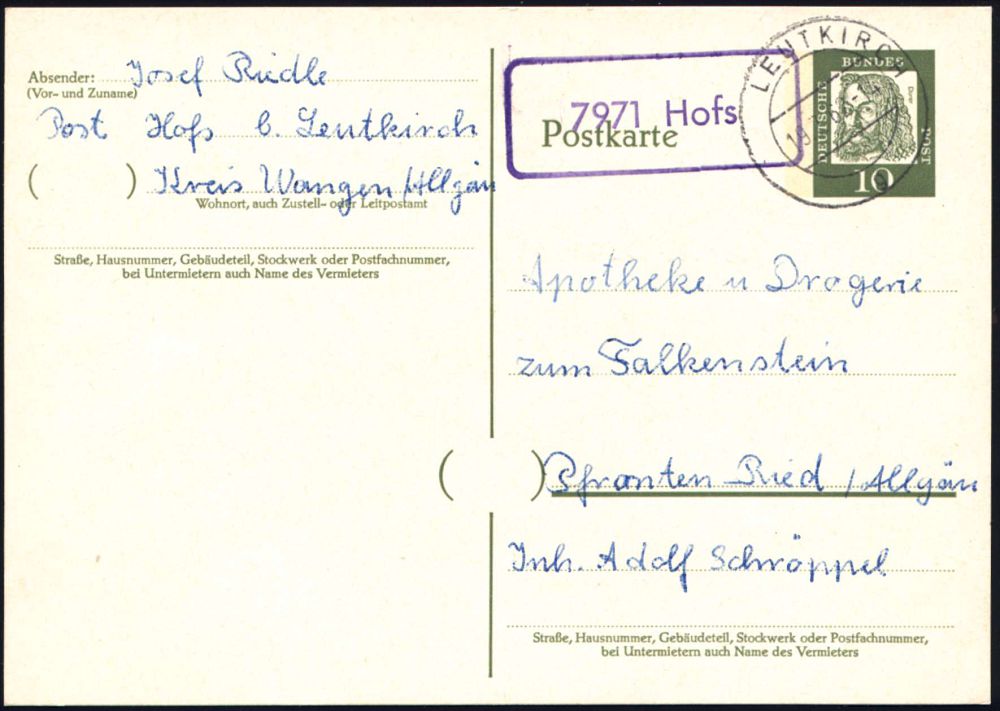 Absender: Josef Riedle
(Vor- und Zuname)
Post Hofs b. Leutkirch
( ) Kreis Wangen/Allgäu
Wohnort, auch Zustell- oder Leitpostamt
Straße, Hausnummer, Gebäudeteil, Stockwerk oder Postfachnummer,
bei Untermietern auch Name des Vermieters
7971 Hofs
Postkarte
LEUTKIRCH
DEUTSCHE
BUNDES
POST
Dürer
10
Apotheke u Drogerie
zum Falkenstein
( ) Pfronten-Ried / Allgäu
Inh. Adolf Schröppel
Straße, Hausnummer, Gebäudeteil, Stockwerk oder Postfachnummer,
bei Untermietern auch Name des Vermieters